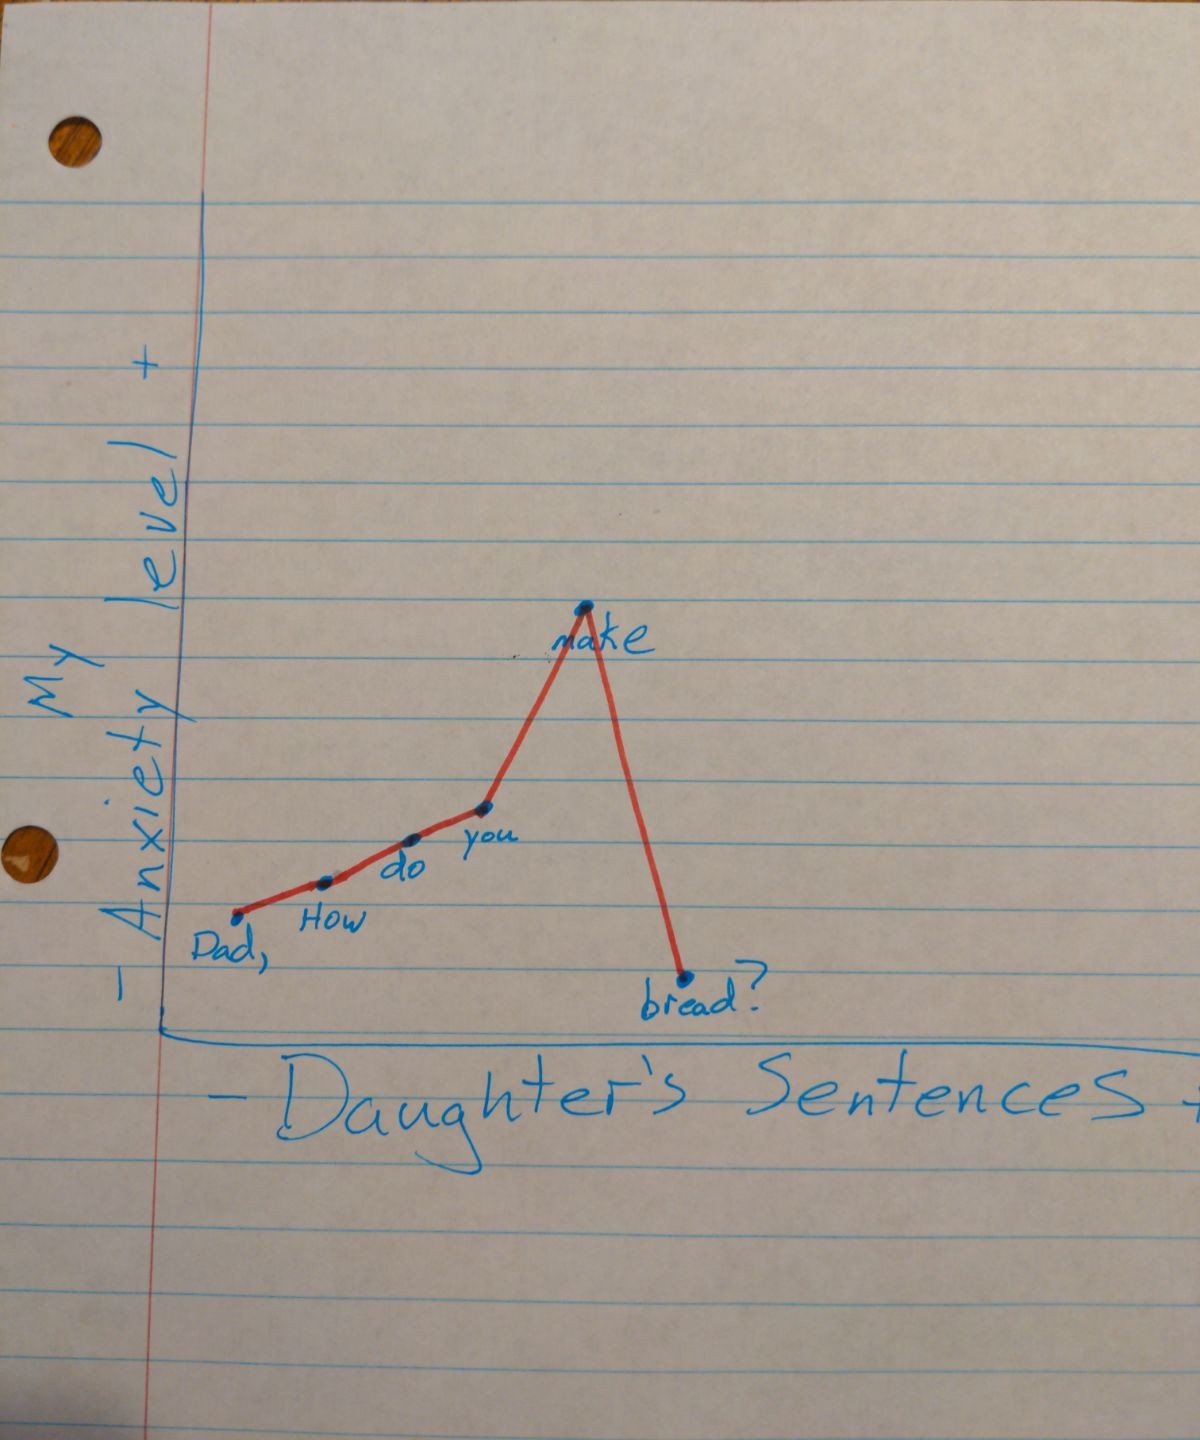 My
- Anxiety level +
make
you
do
How
Dad,
bread?
- Daughter's Sentences +